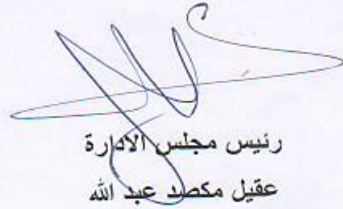 رئيس مجلس الادارة
عقيل مكصد عبد الله